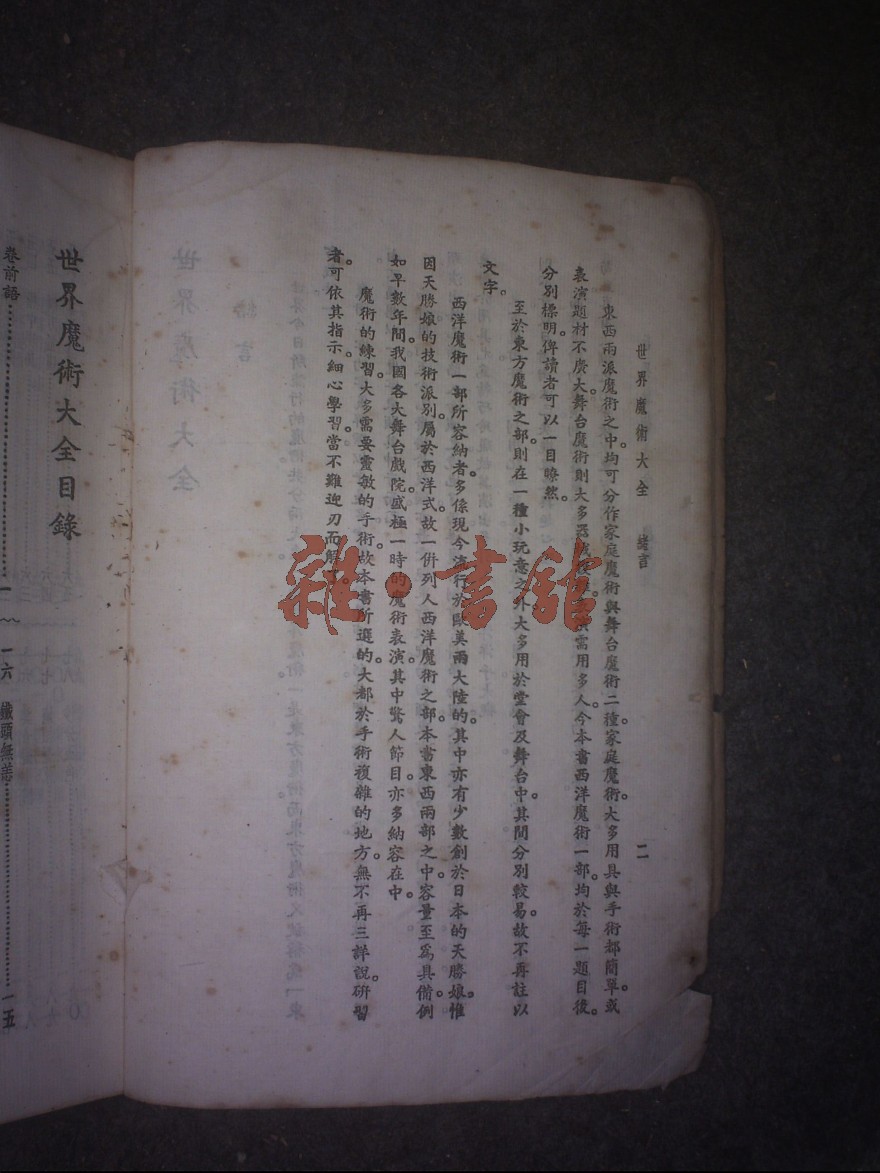 世界魔術大全　緒言　二
東西兩派魔術之中。均可分作家庭魔術與舞台魔術二種。家庭魔術。大多用具與手術都簡單。或
表演題材不廣大。舞台魔術則大多需用多人。今本書西洋魔術一部。均於每一題目後。
分別標明。俾讀者可以一目瞭然。
至於東方魔術之部。則在一種小玩意之外。大多用於堂會及舞台中。其間分別較易。故不再註以
文字。
西洋魔術一部所容納者。多係現今流行於歐美兩大陸的。其中亦有少數創於日本的天勝娘。惟
因天勝娘的技術派別。屬於西洋式。故一併列入西洋魔術之部。本書東西兩部之中。容量至為具備。例
如早數年間。我國各大舞台戲院盛極一時的魔術表演。其中驚人節目。亦多納容在中。
魔術的練習。大多需要靈敏的手術。故本書所選的。大都於手術複雜的地方。無不再三詳說。研習
者可依其指示。細心學習。當不難迎刃而解
雜·書館
世界魔術大全目錄
卷前語……一
一六　鐵頭無恙……一五